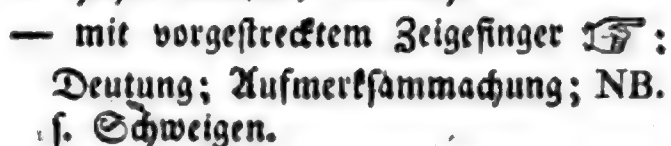 — mit vorgestrecktem Zeigefinger ☞:
Deutung; Aufmerksammachung; NB.
s. Schweigen.